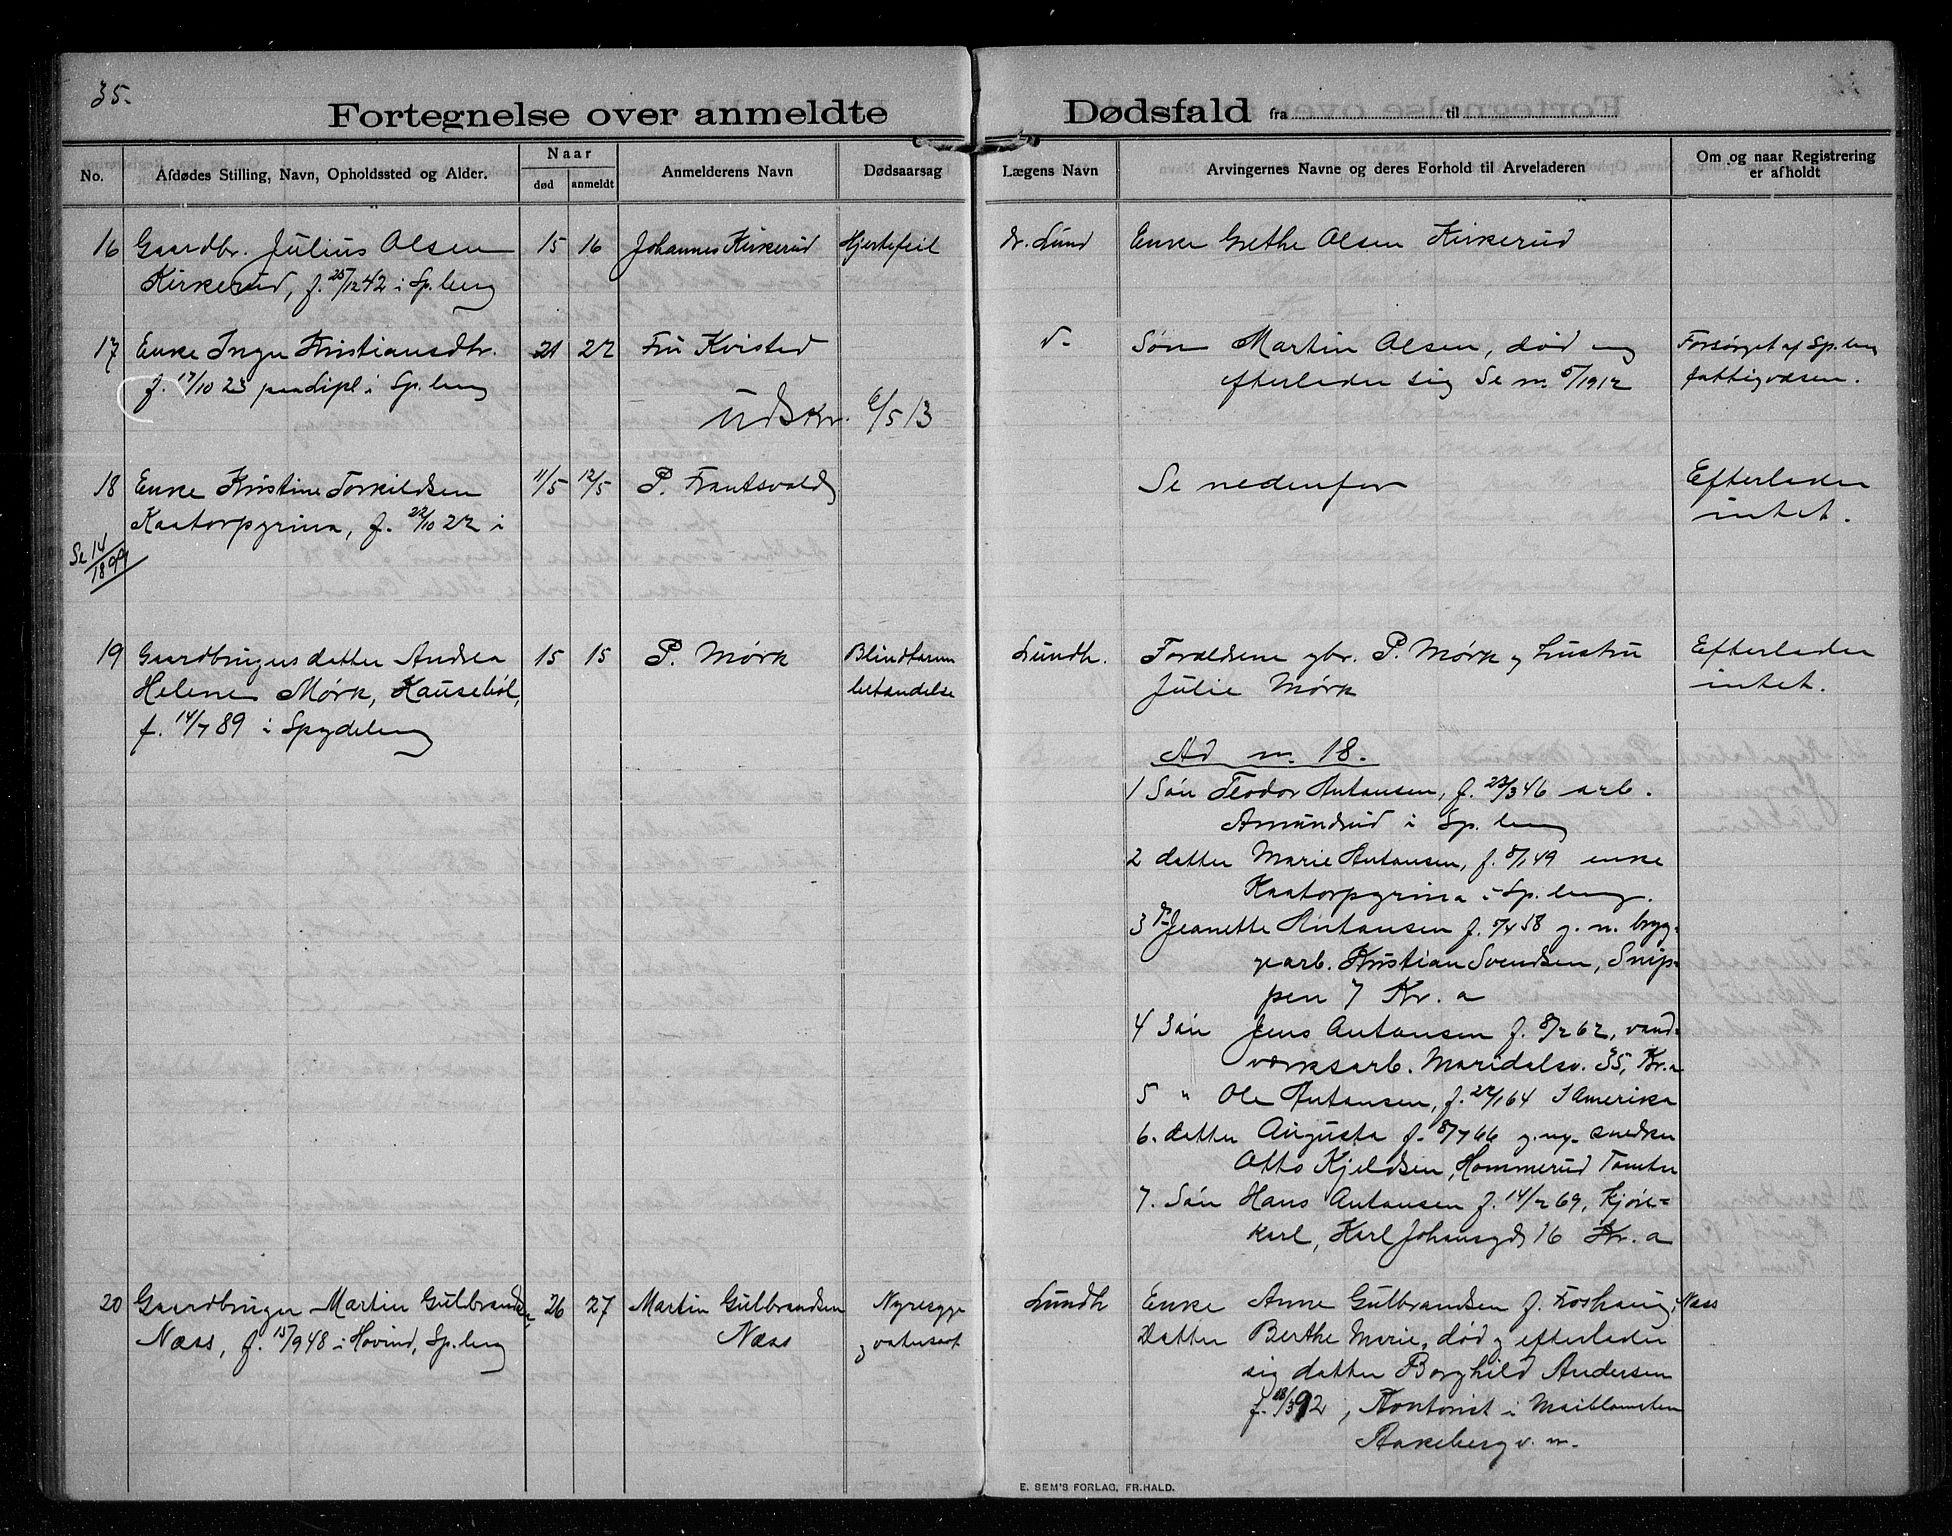 35.
Fortegnelse over anmeldte Dødsfald fra til
No.
Afdødes Stilling, Navn, Opholdssted og Alder.
Naar
død
anmeldt
Anmelderens Navn
Dødsaarsag
Lægens Navn
Arvingernes Navne og deres Forhold til Arveladeren
Om og naar Registrering
er afholdt
16 Gaardbr. Julius Olsen 15 16 Johannes Kirkerud Hjertefeil dr. Lund Enke Grethe Olsen Kirkerud
Kirkerud, f. 25/12 42 i Sp.berg
17 Enke Inger Kristiansdtr. 21 22 Fru Kvisted d- Søn Martin Olsen, død og Forsørget af Sp.berg
f. 17/10 23 i Sp.berg efterlader sig Se nr. 5/1912 fattigvæsen.
Udskr. 6/5 13
18 Enke Kristine Torkildsen 11/5 12/5 P. Frantsvold Se nedenfor Efterlader
Kaatorpgrina, f. 22/10 22 i intet.
Se 14/1899
19 Gaardbrugers datter Andrea 15 15 P. Mørk Blindtarm Lundh. Forældrene gbr. P. Mørk og hustru Efterlader
Helene Mørk, Kausebøl, betændelse Julie Mørk intet.
f. 14/7 89 i Spydeberg
Ad nr. 18.
1 Søn Teodor Antonsen, f. 23/3 46 arb.
Amundrud i Sp.berg
2 datter Marie Antonsen, f. 8/1 49 enke
Kaatorpgrina i Sp.berg.
3 d- Jeanette Antonsen f. 5/4 58 g. m. bryg-
gearb. Kristian Svendsen, Snip-
pen 7 Kr.a
4 Søn Jens Antonsen f. 8/2 62, vand-
værksarb. Maridalsv. 35, Kr.a
5 " Ole Antonsen, f. 22/1 64 I Amerika
6. datter Augusta f. 8/7 66 g.m. snedker
Otto Kjeldsen, Hommerud Tomter
7. Søn Hans Antonsen f. 14/2 69, kjøre-
karl, Karl Johansgd 16 Kr.a
20 Gaardbruger Martin Gulbrandsen, 26 27 Martin Gulbrandsen Nyresyge Lundh Enke Anne Gulbrandsen f. Foshaug, Næss
Næss, f. 15/9 48 i Hovind, Sp.berg Næss og vatersot Datter Berthe Marie, død og efterlader
sig datter Borghild Andersen
f. 28/3 92, Kontorist i Maiblomsten
Aakeberg v. m.
E. SEM'S FORLAG, FR.HALD.